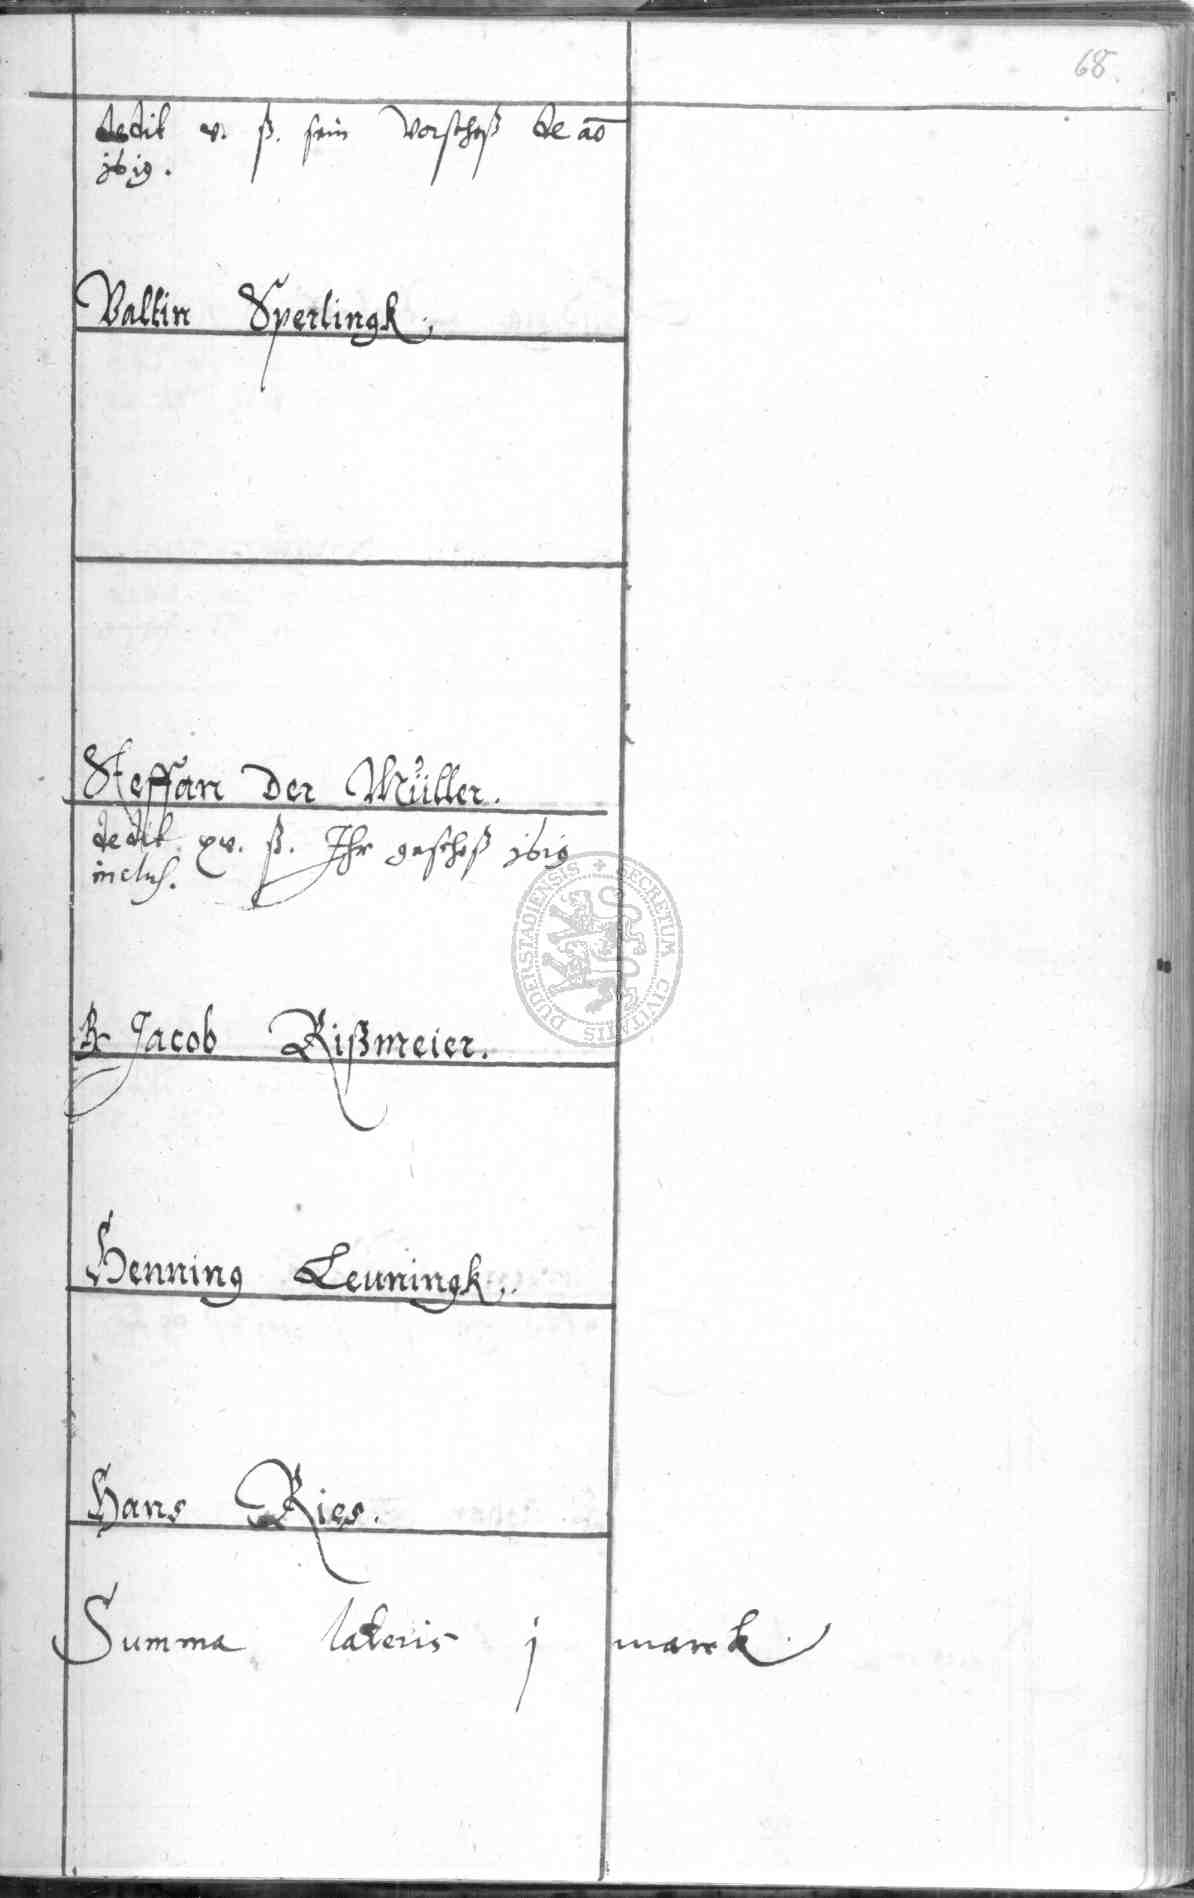 68.
dedit v. ß. sein Vorschoß de ao
1619.
Valtin Sperlingk.
Steffan Der Müller.
dedit xv. ß. Ihr geschoß 1619
inclus.
Jacob Rißmeier.
DUDERSTADIENSIS + SECRETUM CIVITATIS
Henning Leuningk.
Hans Ries.
Summa lateris j marck.